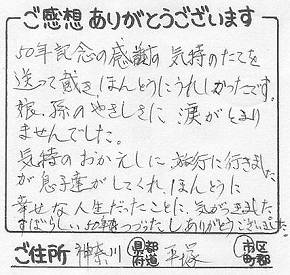 ご感想ありがとうございます
50年記念の感謝の気持のたてを
送って戴きほんとうにうれしかったです。
娘、孫のやさしさに涙がとまり
ませんでした。
気持のおかえしに旅行に行きました
が息子達がしてくれ、ほんとうに
幸せな人生だったことに、気がつきました
すばらしい 50年 ありがとうございました。
ご住所 神奈川 都道府県 平塚 市区町郡